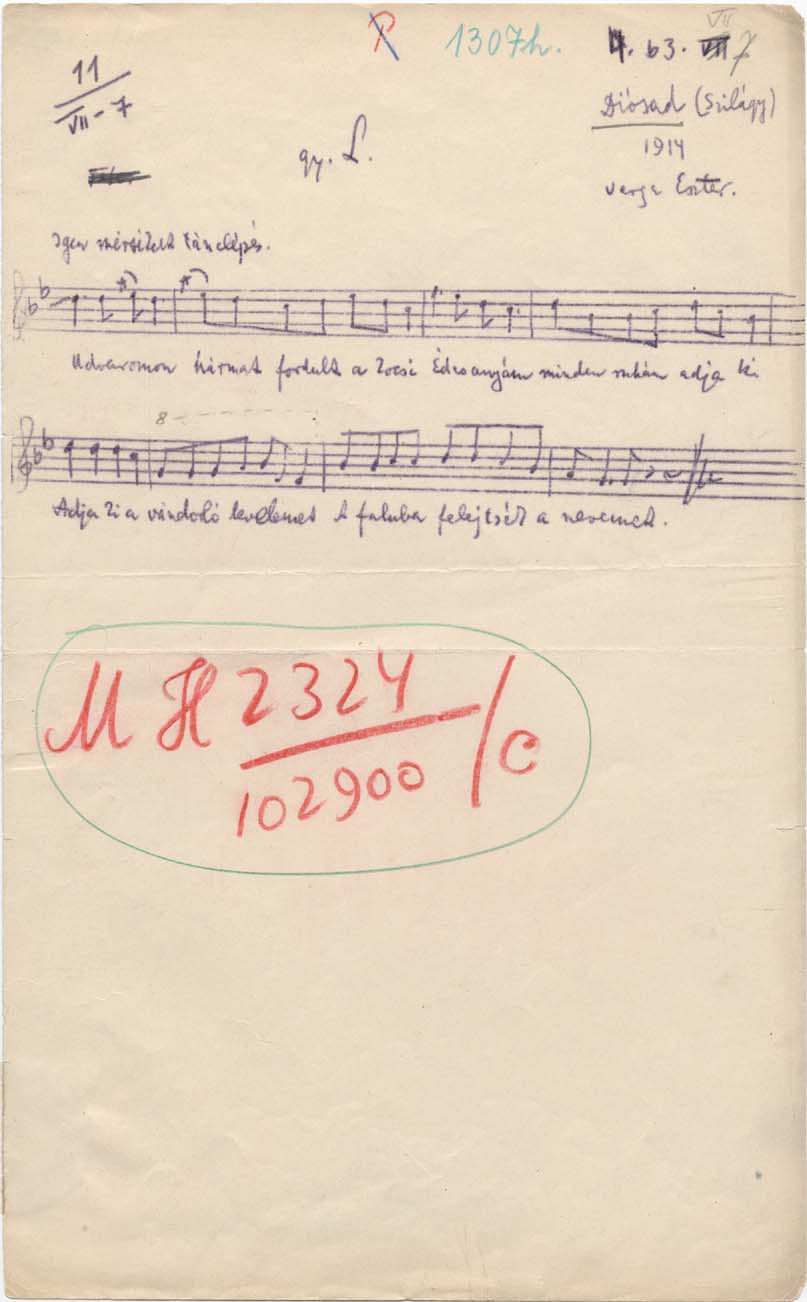 1307h.
4. 63. VII 7
11
VII - 7
Diósad (Szilágy)
1914
gy. L.
Varga Eszter.
Igen mérsékelt tánclépés.
Udvaromon hármat fordult a kocsi Édesanyám minden ruhám adja ki
8
Adja ki a vándorló levelemet A faluba felejtsék a nevemet.
MH 2324 /c
102900